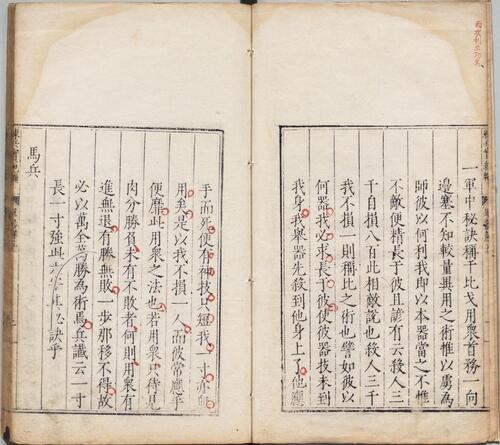 一軍中秘訣稱干比戈用衆首務一向
邊塞不知較量與用之術惟以虜爲
師彼以何利我即以本器當之不惟
不敵便精長于彼且諺有云殺人三
千自損八百此相敵說也殺人三千
我不損一則稱比之術也譬如彼以
何器我必求長于彼使彼器技未到
我身我舉器先殺到他身上了他應
手而死便有神技只短我一寸亦無
用矣是以我不損一人而彼常應手
便靡此用衆之法也若用衆只待見
肉分勝負未有不敗者何則用衆有
進無退有勝無敗一步那移不得故
必以萬全萬勝爲術馬兵讖云一寸
長一寸強此秘訣乎
馬兵